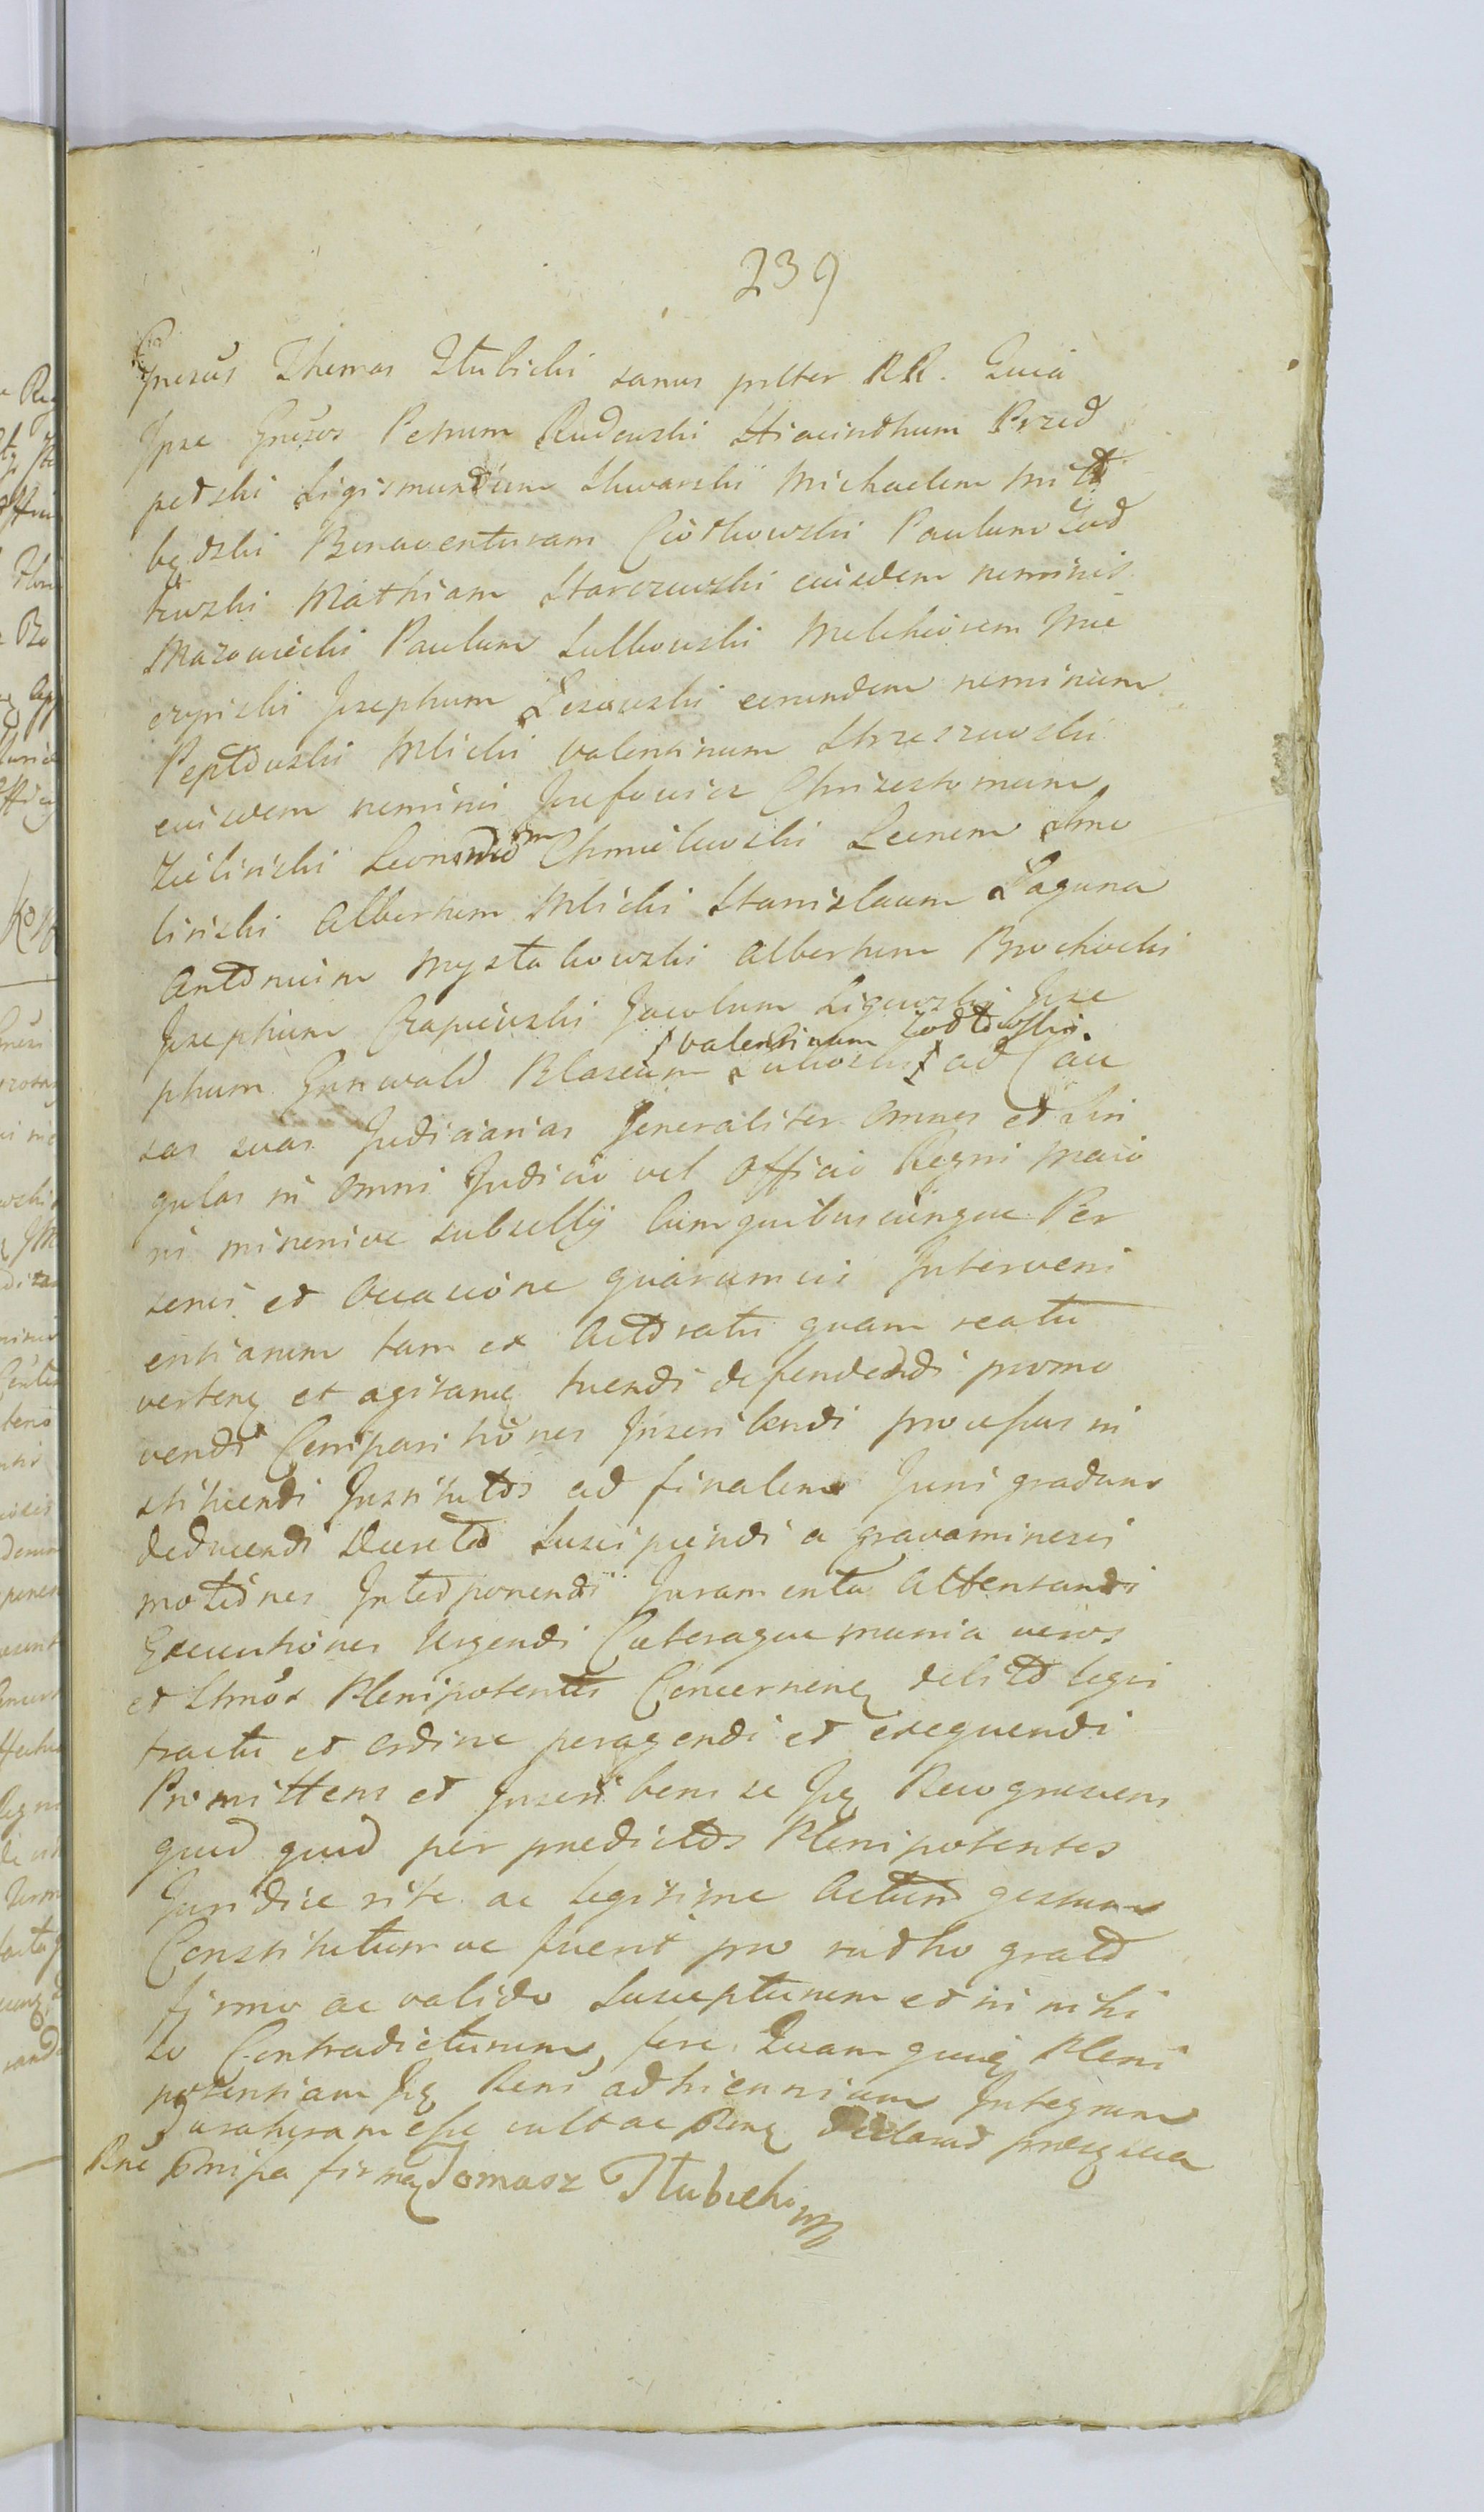 239
Gnrsus Thomas Słubicki sanus prltter RR. Quia
Ipse Gnrsos Petrum Rudowski Hiacinthum Przed
petski Sigismundum Skwarski Michaelem
Bonaventuram Ciołkowski Paulum
Mathiam Starczewski eiusdem nominis
Mazowiecki Paulum Sulkowski Melchiorem Mie
czyński Josephum Lisowski eorundem nominum
Mlicki Valentinum Strzeszewski
eiusdem nominis Josefowicz Chrizostomum
Zieliński Leonardum Chmielewski Leonem Smo
liński Albertum Mlicki Stanislaum Laguna
Antonium Mystkowski Albertum Brochocki
Josephum Czapiewski Jacobum Ligowski Jose
phum Grunwald Blasium Valentinum ad Cau
sas suas Judiciarias Generaliter omnes et Sin
gulas in omni Judicio vel Officio Regni maio
ris minorive subsellij cumquibuscunque Per
sonis et Occasione quarumvis Interveni
entiarum tam ex Actoratu quam reatu
verten et agitan tuendi defendendi promo
vendi Comparitiones Inscribendi processus in
stituendi Institutos ad finalem Juris gradum
deducendi Decreta Suscipiendi a gravaminosis
motiones Interponendi Juramenta Attentandi
Executiones Urgendi Caeteraque munia veros
et Ltmos Plenipotentes Concernen debito legis
tractu et ordine peragendi et exequendi
Promittens et Inscribens se Ips Recognoscens
quid quid per praedictos Plenipotentes
Juridice rite ac legitime Actum gestum
Constitutum ve fuerit pro ratho grato
firmo ac valido Suscepturum et in nihi
lo Contradicturum fore. Quam quid Pleni
potentiam Ips Rens adtriennium Integrum
Duraturam esse vult ac Declarat
Tomasz Słubicki mp